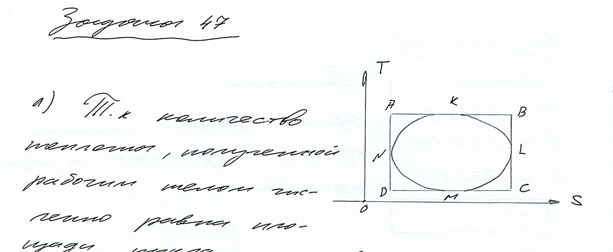 Задача 47
а) Т.к количество
теплоты, полученной
рабочим телом чис-
ленно равна пло-
щади цикла
T
A K B
N L
D M C
0 S